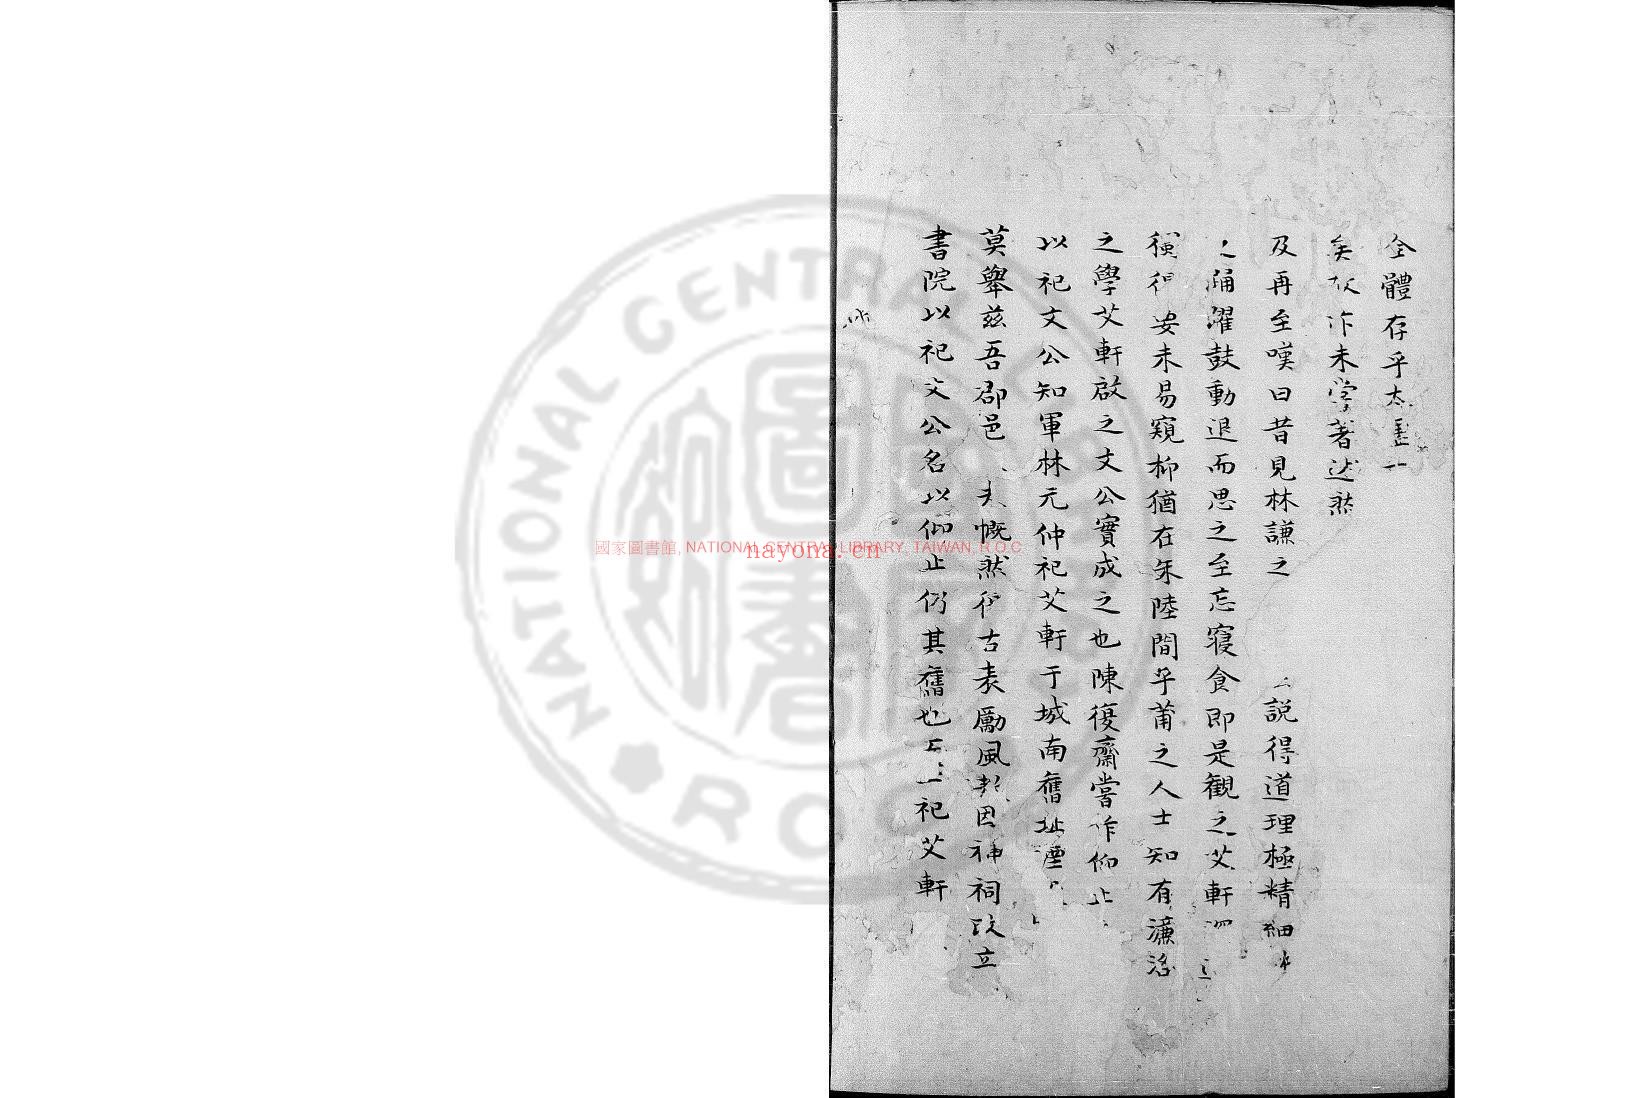 全體存乎太虛
矣故作未学著述然
及再至嘆曰昔見林謙之說得道理極精細
踊濯鼓動退而思之至忘寢食即是觀之艾軒
妄未易窺抑猶在朱陸間乎莆之人士知有濂洛
之學艾軒啟之文公實成之也陳復齋嘗作仰止
以祀文公知軍林元仲祀艾軒于城南舊址
莫舉茲吾郡邑慨然古表勵風因神祠改立
書院以祀文公名以仰止仍其舊也祀艾軒
國家圖書館, NATIONAL CENTRAL LIBRARY, TAIWAN, R.O.C
nayona.cn
NATIONAL CENTRAL LIBRARY
ROC
國家圖書館